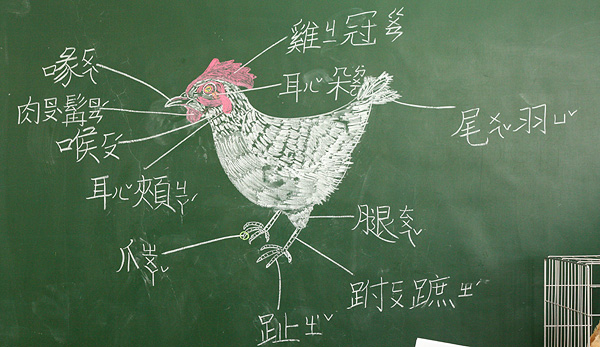 雞ㄐㄧ冠ㄍㄨㄢ
喙ㄏㄨㄟˋ
耳ㄦˇ朵ㄉㄨㄛ
肉ㄖㄡˋ髯ㄖㄢˊ
尾ㄨㄟˇ羽ㄩˇ
喉ㄏㄡˊ
耳ㄦˇ頰ㄐㄧㄚˊ
腿ㄊㄨㄟˇ
爪ㄓㄨㄚˇ
跗ㄈㄨ蹠ㄓˊ
趾ㄓˇ